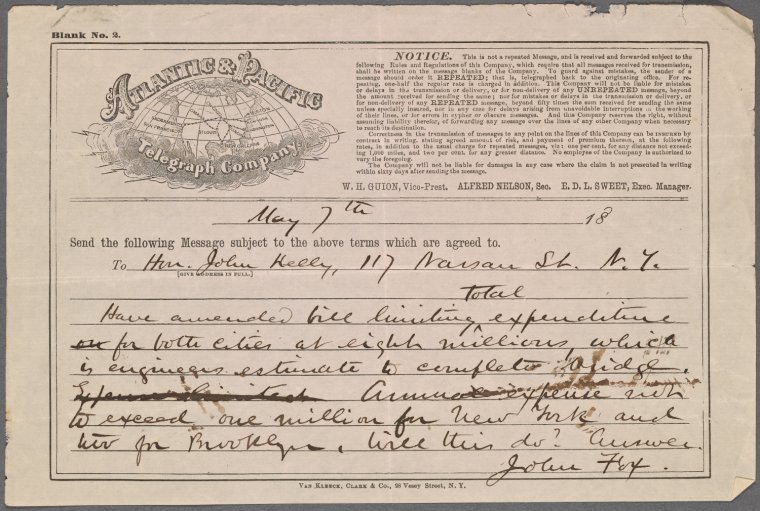 Blank No. 2.
ATLANTIC & PACIFIC
Telegraph Company.
NOTICE. This is not a repeated Message, and is received and forwarded subject to the
following Rules and Regulations of this Company, which require that all messages received for transmission,
shall be written on the message blanks of the Company. To guard against mistakes, the sender of a
message should order it REPEATED; that is, telegraphed back to the originating office. For re-
peating, one-half the regular rate is charged in addition. This Company will not be liable for mistakes
or delays in the transmission or delivery, or for non-delivery of any UNREPEATED message, beyond
the amount received for sending the same; nor for mistakes or delays in the transmission or delivery, or
for non-delivery of any REPEATED message, beyond fifty times the sum received for sending the same
unless specially insured, nor in any case for delays arising from unavoidable interruptions in the working
of their lines, or for errors in cypher or obscure messages. And this Company reserves the right, without
assuming liability therefor, of forwarding any message over the lines of any other Company when necessary
to reach its destination.
Correctness in the transmission of messages to any point on the lines of this Company can be INSURED by
contract in writing, stating agreed amount of risk, and payment of premium thereon, at the following
rates, in addition to the usual charge for repeated messages, viz: one per cent. for any distance not exceed-
ing 1,000 miles, and two per cent. for any greater distance. No employee of the Company is authorized to
vary the foregoing.
The Company will not be liable for damages in any case where the claim is not presented in writing
within sixty days after sending the message.
W. H. GUION, Vice-Prest. ALFRED NELSON, Sec. E. D. L. SWEET, Exec. Manager.
May 7th 18
Send the following Message subject to the above terms which are agreed to.
To Hon. John Kelly, 117 Nassau St. N.Y.
[GIVE ADDRESS IN FULL.]
total
Have amended bill limiting expenditure
for both cities at eight millions, which
is engineers estimate to complete bridge.
Annual expense not
to exceed one million for New York and
two for Brooklyn. Will this do? Answer.
John Fox.
VAN KLEECK, CLARK & Co., 28 Vesey Street, N. Y.